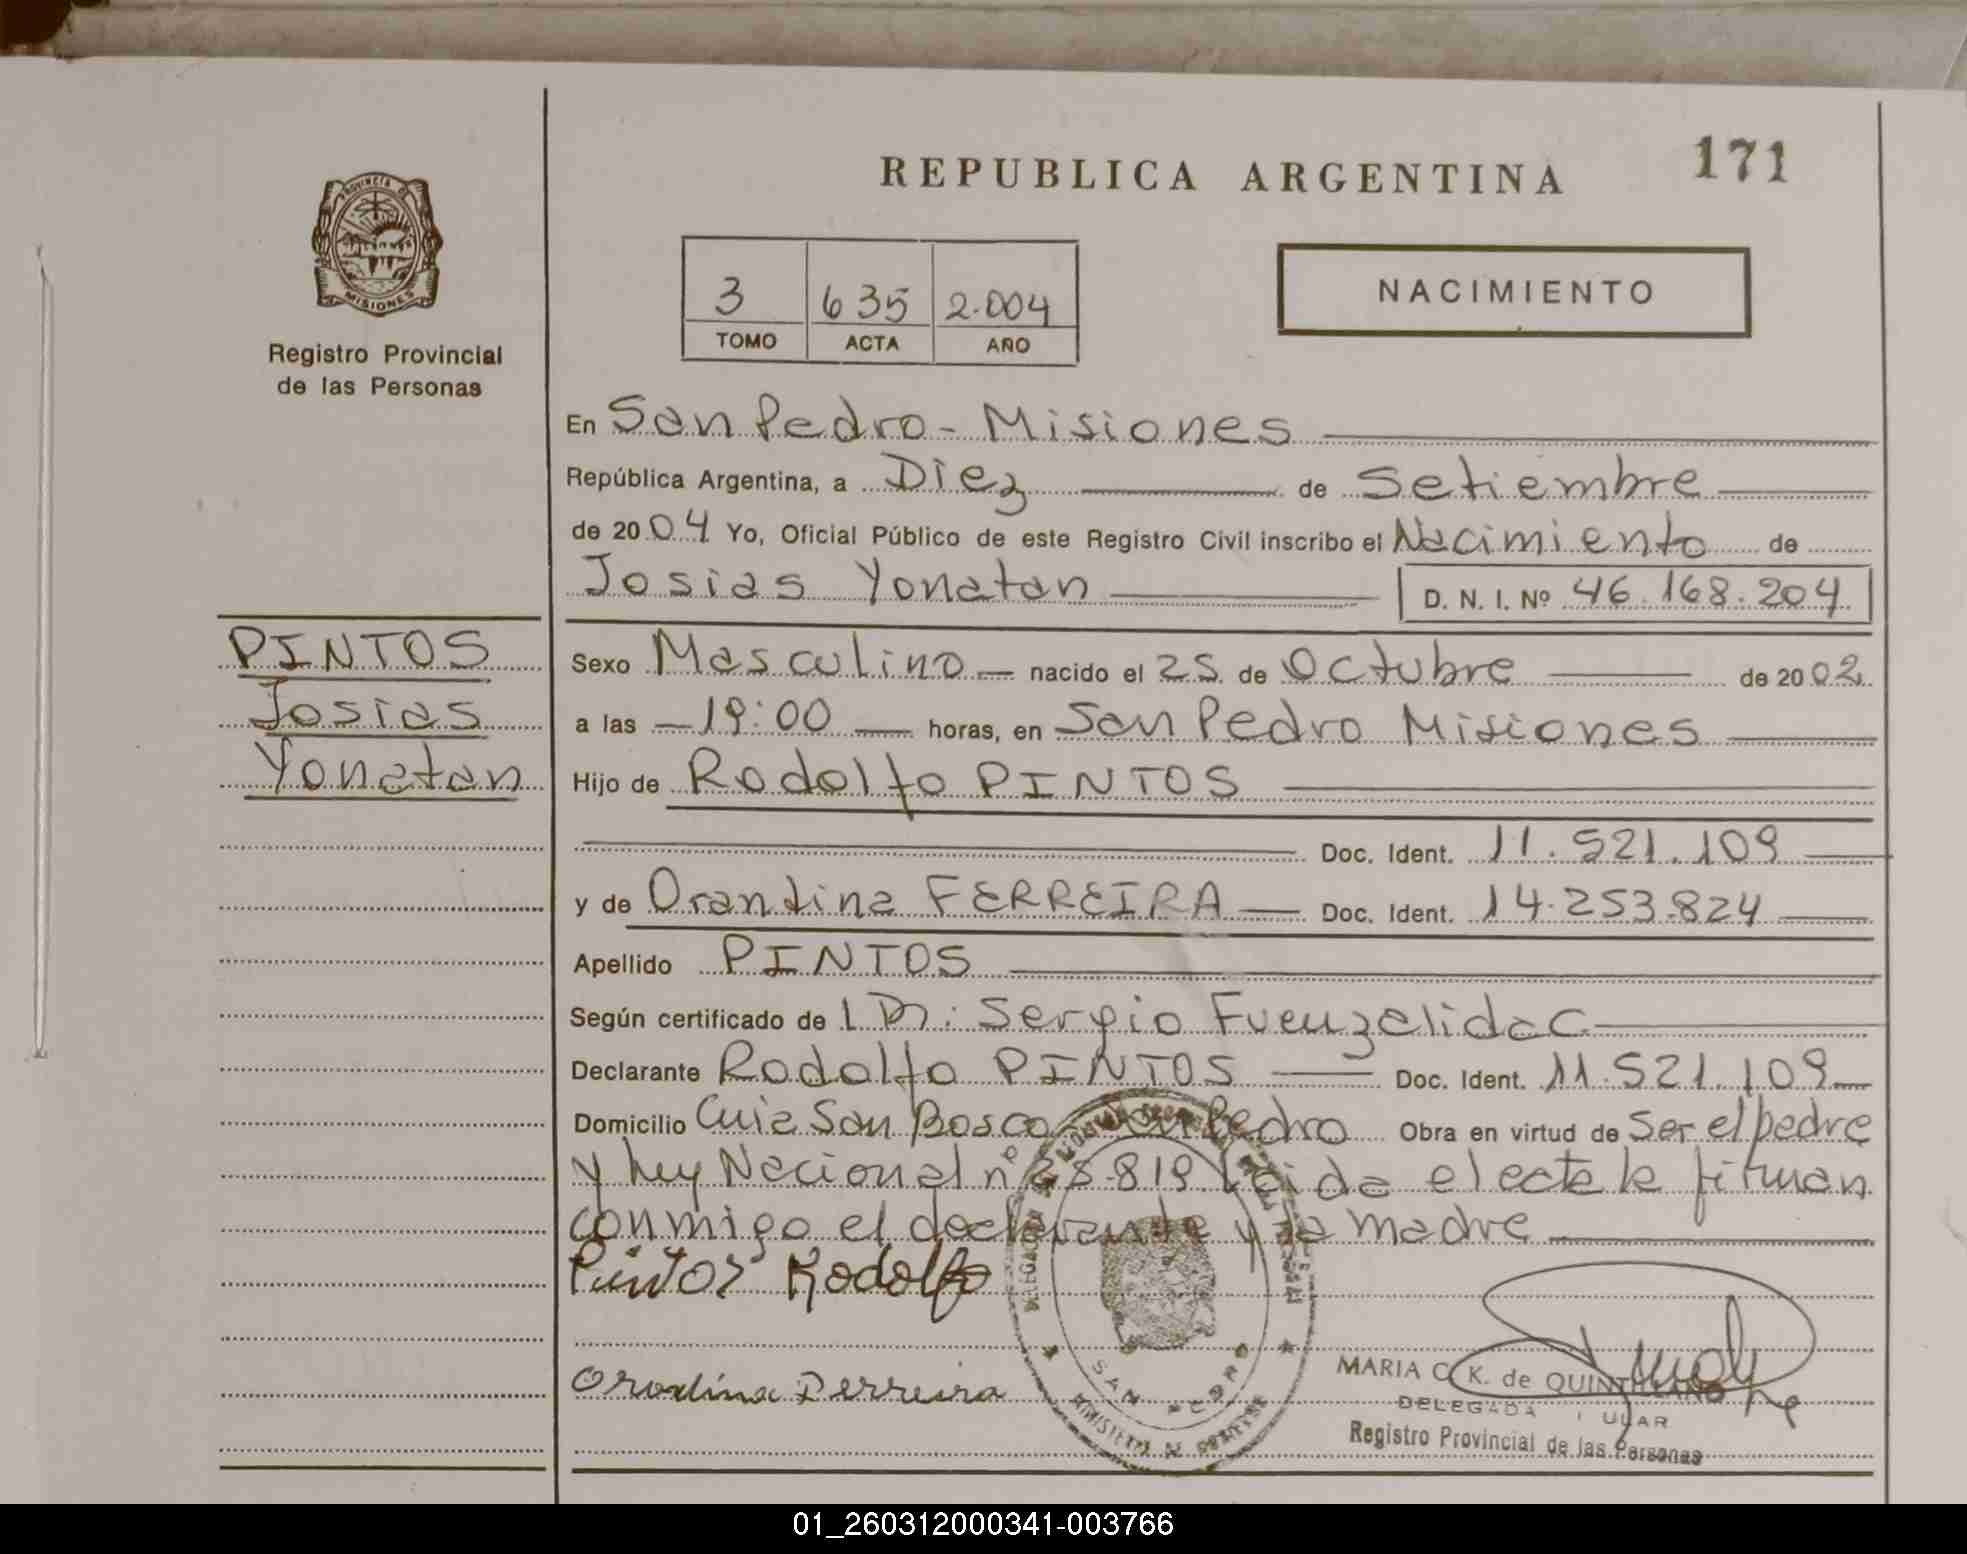 REPUBLICA ARGENTINA
171
PROVINCIA DE
MISIONES
Registro Provincial
de las Personas
3 635 2.004
TOMO ACTA AÑO
NACIMIENTO
En San Pedro - Misiones
República Argentina, a Diez de Setiembre
de 2004 Yo, Oficial Público de este Registro Civil inscribo el Nacimiento de
Josias Yonatan D. N. I. Nº 46.168.204
PINTOS
Josias
Yonatan
Sexo Masculino nacido el 25 de Octubre de 2002
a las 19:00 horas, en San Pedro Misiones
Hijo de Rodolfo PINTOS
Doc. Ident. 11.521.109
y de Orandina FERREIRA Doc. Ident. 14.253.824
Apellido PINTOS
Según certificado de l Dr. Sergio Fuenzalida C.
Declarante Rodolfo PINTOS Doc. Ident. 11.521.109
Domicilio Cuia San Bosco San Pedro Obra en virtud de Ser el padre
y Ley Nacional nº 25.819. Leida el acta la firman
conmigo el declarante y la madre
Pintos Rodolfo
Orandina Ferreira
SAN PEDRO
MINISTERIO DE GOBIERNO
MARIA C. K. de
DELEGADA
Registro Provincial de las Personas
01_260312000341-003766